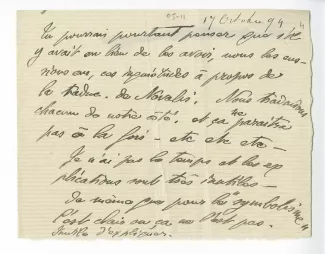 17 Octobre 94
Tu pourrais pourtant penser que s'il
y avait eu lieu de les avoir, nous les eus-
sions eus, ces inquiétudes à propos de
la traduc. de Novalis. Nous traduisons
chacun de notre côté. et ça ne paraîtra
pas à la fois - etc etc etc -
Je n'ai pas le temps et les ex
plications sont très inutiles -
de même que pour les "symbolismes"
C'est clair ou ça ne l'est pas.
Inutile d'expliquer.